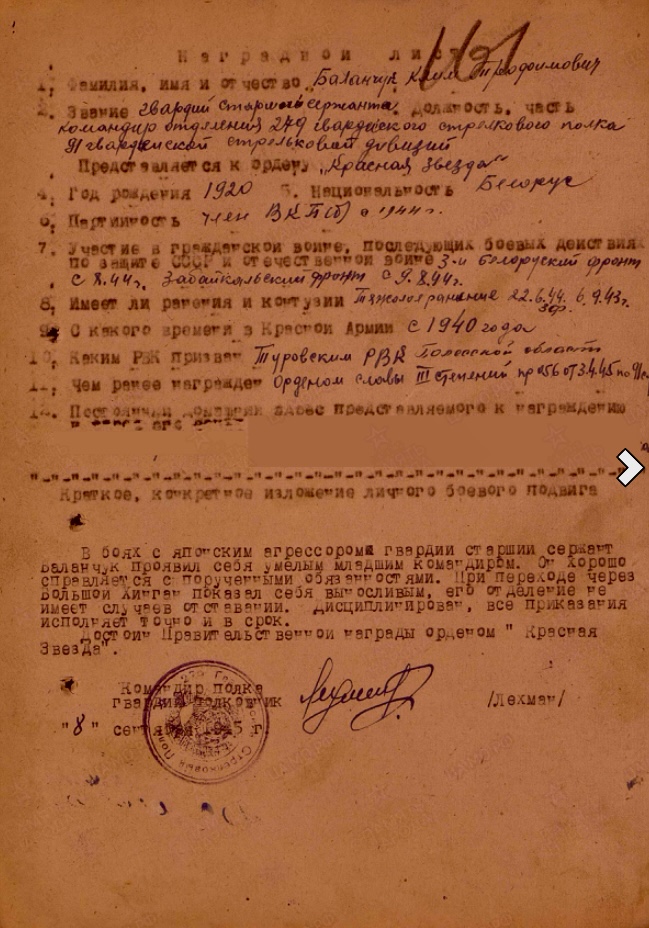 Наградной лист
1, Фамилия, имя и отчество Баланчук Клим Трофимович
2. Звание гвардии старший сержант. Должность, часть
командир отделения 279 гвардейского стрелкового полка
91 гвардейской стрелковой дивизии
Представляется к ордену „Красная звезда"
4, Год рождения 1920 5. Национальность Белорус
6, Партийность член ВКП(б) с 1944 г.
7, Участие в гражданской войне, последующих боевых действиях
по защите СССР и отечественной войне 3-й Белоруский фронт
с 8.44г. Забайкальский фронт с 9.8.
8, Имеет ли ранения и контузии Тяжелое ранение 22.6.44. 6.9.43г.
9, С какого времени в Красной Армии с 1940 года
10, Каким РВК призван Туровским РВК Полесской области
11, Чем ранее награжден Орденом славы III степений пр 056 от 3.4.45 по 91
12. Постоянный домашний адрес представляемого к награждению
Краткое, конкретное изложение личного боевого подвига
В боях с японским агрессором гвардии старший сержант
Баланчук проявил себя умелым младшим командиром. Он хорошо
справляется с порученными обязанностями. При переходе через
Большой Хинган показал себя выносливым, его отделение не
имеет случаев отставании. Дисциплинирован, все приказания
исполняет точно и в срок.
Достоин Правительственной награды орденом " Красная
Звезда".
Командир полка
гвардии полковник /Лехман/
"8" сентября 1945 г.